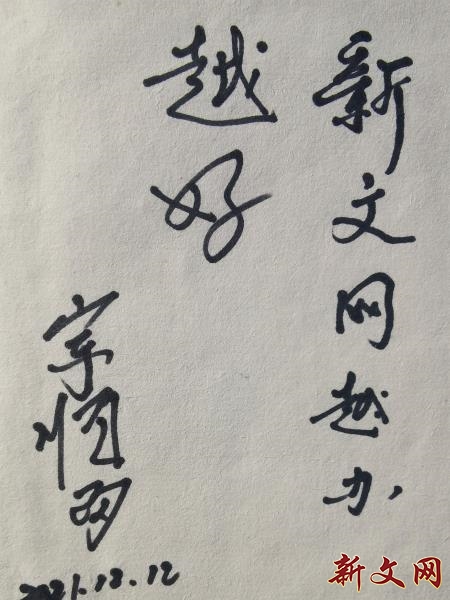 新文网越办
越好
宗
2021.12.12
新文网